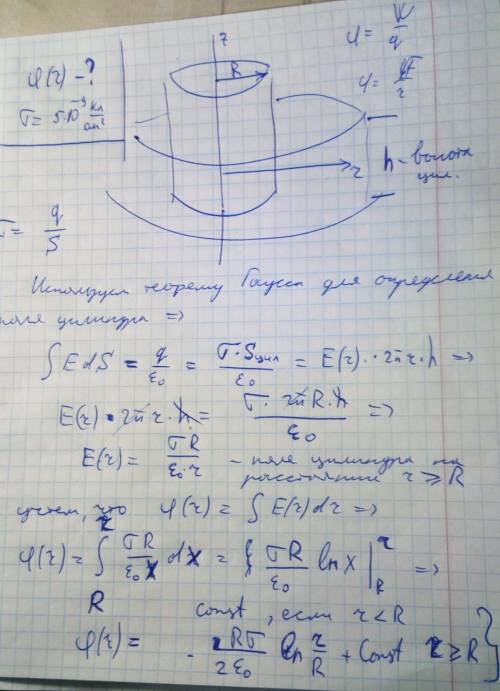 z
φ = W/q
φ(r) - ?
R
σ = 5·10⁻⁹ Кл/см²
r
h - высота
цил.
σ = q/S
Используем теорему Гаусса для определения
поля цилиндра =>
∫ E dS = q/ε₀ = σ·Sцил/ε₀ = E(r)··2πr·h =>
E(r)·2πr·h = σ·2πR·h/ε₀ =>
E(r) = σR/ε₀·r - поле цилиндра на
расстоянии r ≥ R
учтем, что φ(r) = ∫ E(r)dr =>
φ(r) = ∫ᵣR σR/ε₀x dx = { σR/ε₀ ln x |ʳR =>
const, если r < R
φ(r) = - 2Rσ/2ε₀ ln r/R + Const r ≥ R }